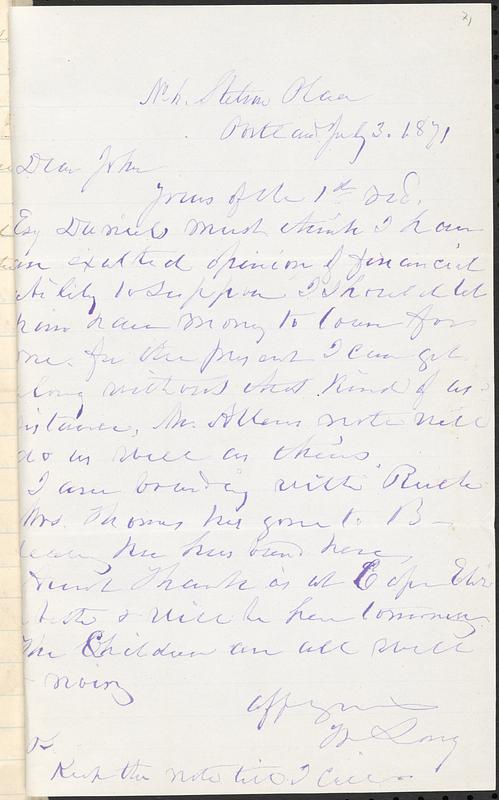 71
No 4. Stetson Place
Portland July 3. 1871
Dear John
Yours of the 1st recd.
Esq Daniels must think I have
an exalted opinion of financial
ability to suppose I should let
him have money to loan for
me. for the present I can get
along without that kind of as-
sistance, Mr. Allens note will
do as well as theirs
I am boarding with Ruth
Mrs. Thomas has gone to B
her husband here,
Aunt Thank is at Cape Eliz
abeth & will be here tomorrow
The Children are all well
Affy yours
Long
Ps
Keep the note till I call